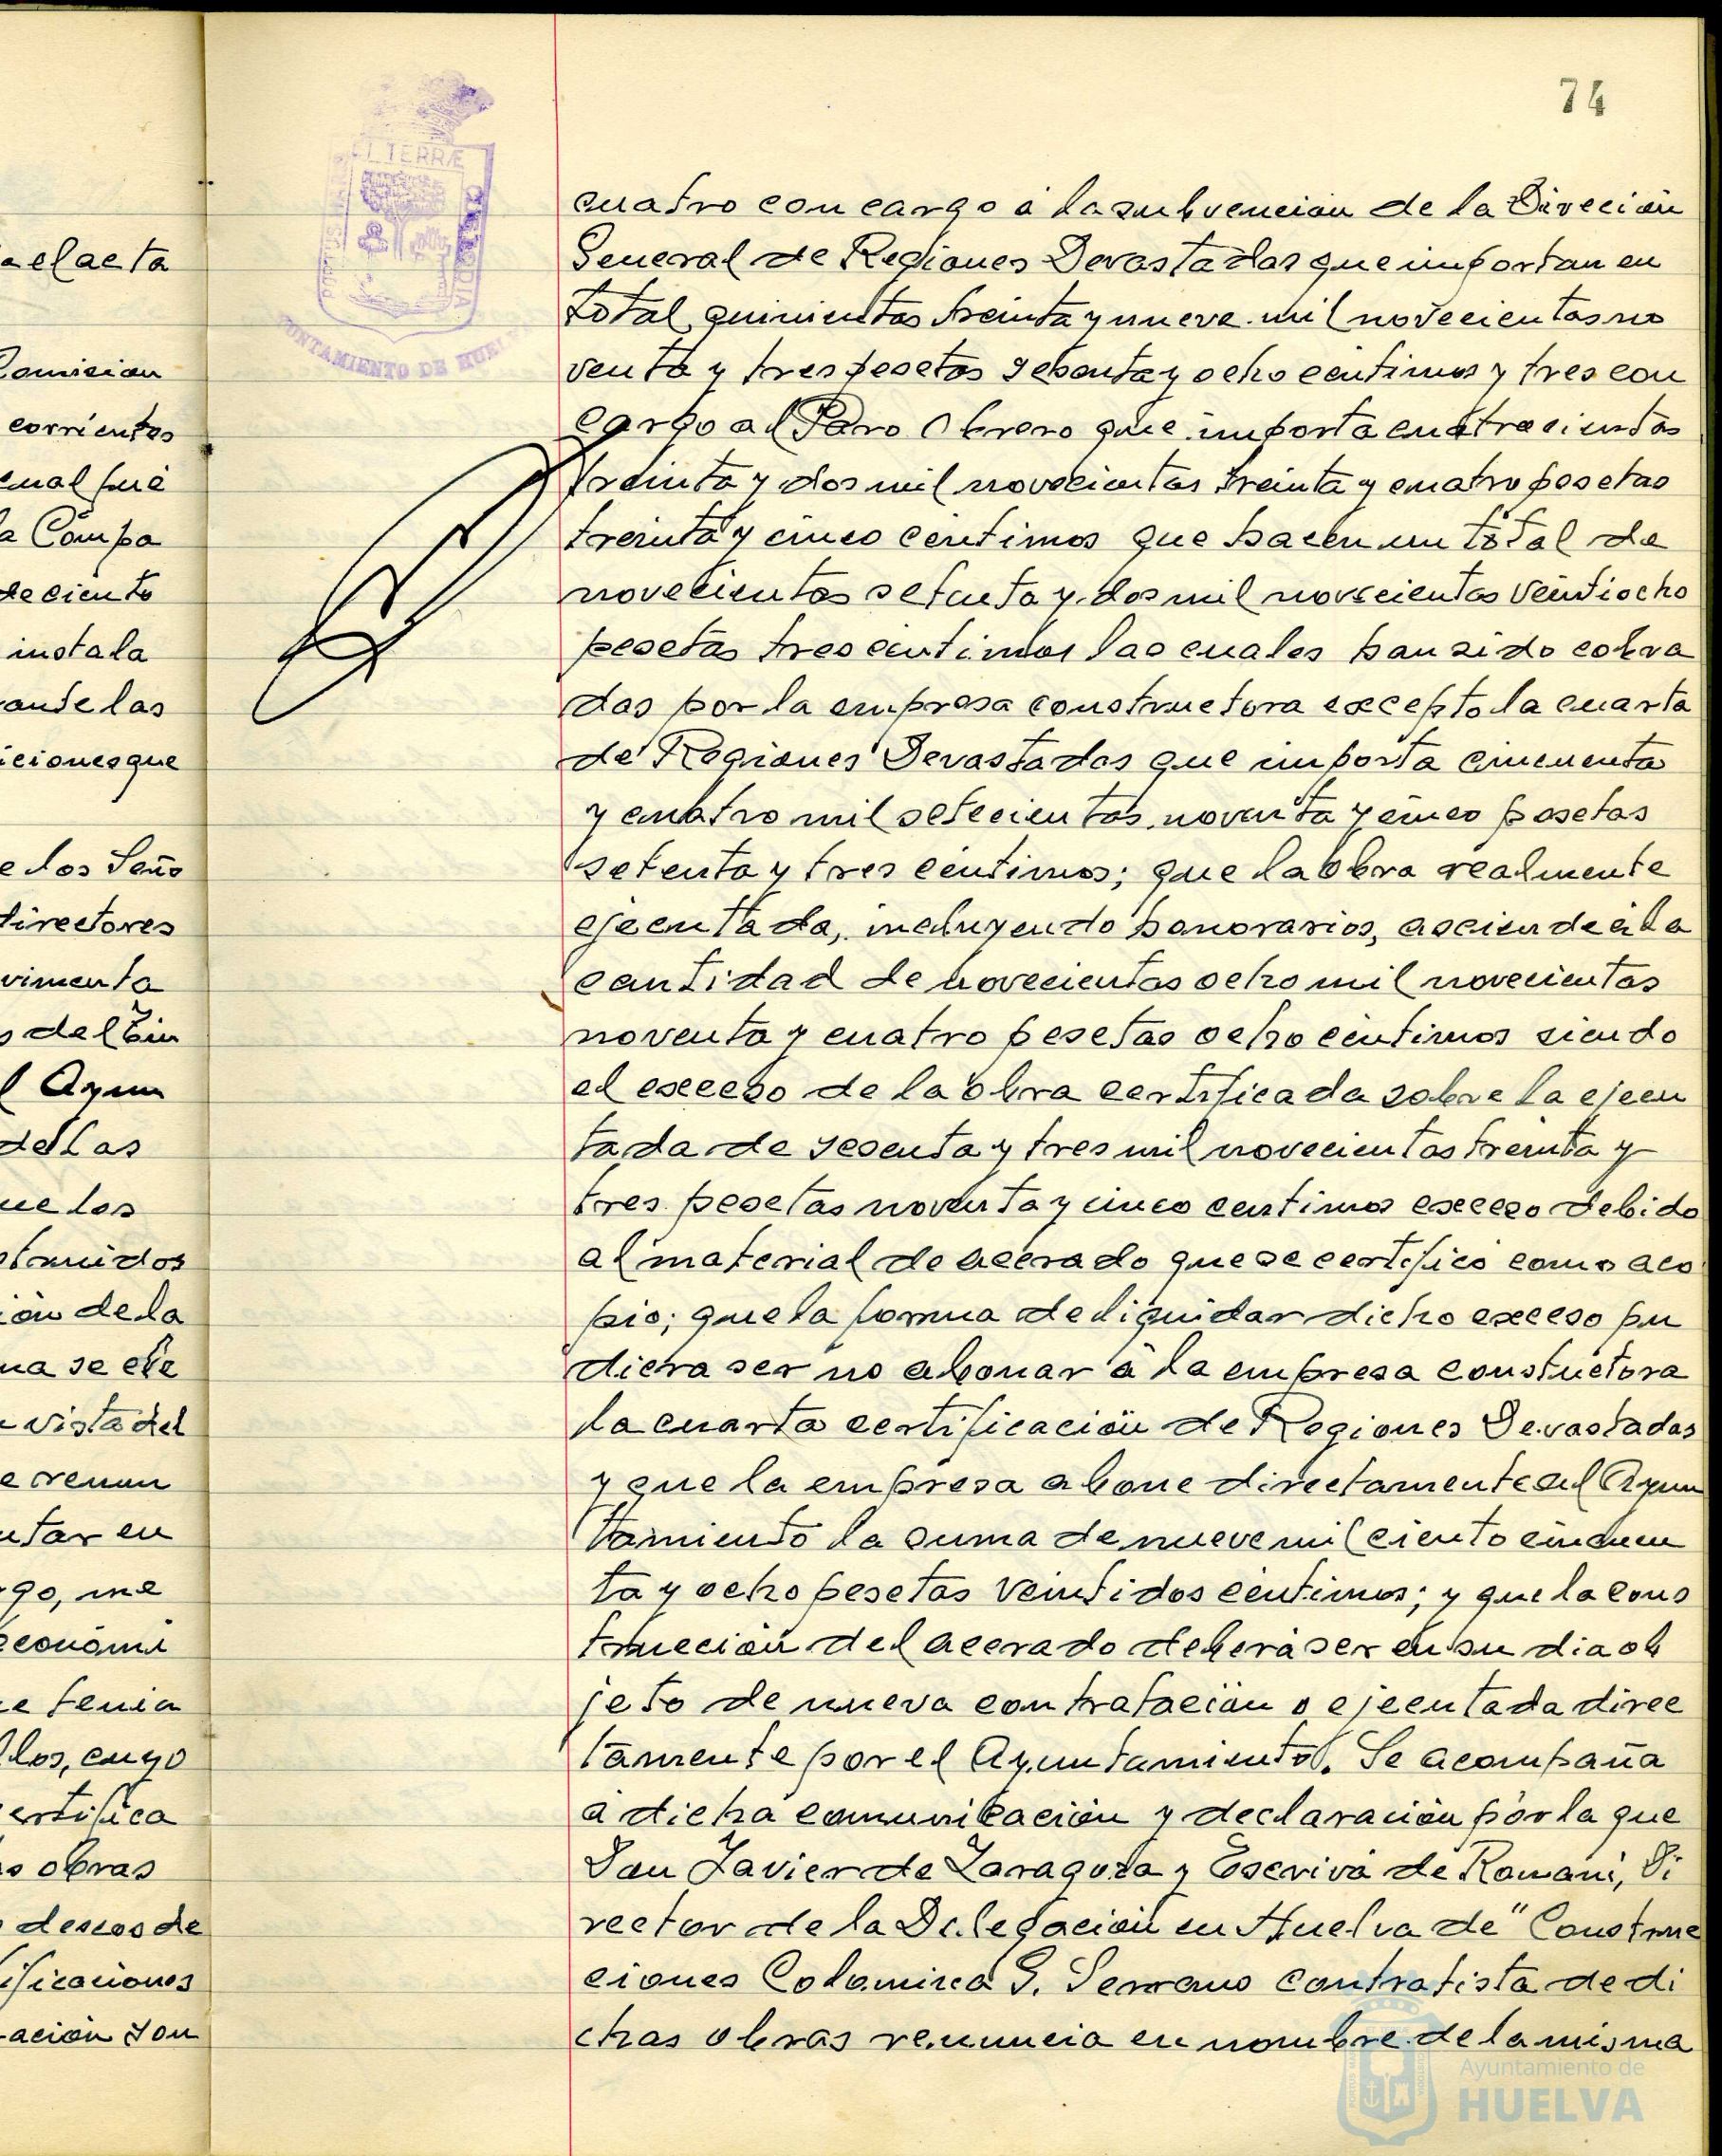 a el acta
Comision
corrientes
cual fué
a Compa
de ciento
instala
ante las
iciones que
e los Seño
directores
vimenta
s del Cin
l Ayun
de las
ue los
struidos
ión de la
ma se efe
vista del
e renun
utar en
go, me
económi
e tenia
los, cuyo
ertifica
s obras
deseos de
ificaciones
ación son
74
EL TERRÆ
CUSTODIA
AYUNTAMIENTO DE HUELVA
cuatro con cargo á la subvencion de la Dirección
General de Regiones Devastadas que importan en
total quinientas treinta y nueve mil novecientas no
venta y tres pesetas sesenta y ocho centimos y tres con
cargo al Paro Obrero que importa cuatrocientas
treinta y dos mil novecientas treinta y cuatro pesetas
treinta y cinco centimos que hacen un total de
novecientas setenta y dos mil novecientas veintiocho
pesetas tres centimos las cuales han sido cobra
das por la empresa constructora excepto la cuarta
de Regiones Devastadas que importa cincuenta
y cuatro mil setecientas noventa y cinco pesetas
setenta y tres centimos; que la obra realmente
ejecutada, incluyendo honorarios, asciende á la
cantidad de novecientas ocho mil novecientas
noventa y cuatro pesetas ocho centimos siendo
el exceso de la obra certificada sobre la ejecu
tada de sesenta y tres mil novecientas treinta y
tres pesetas noventa y cinco centimos exceso debido
al material de acerado que se certificó como aco
pio; que la forma de liquidar dicho exceso pu
diera ser no abonar á la empresa constuctora
la cuarta certificación de Regiones Devastadas
y que la empresa abone directamente al Ayun
tamiento la suma de nueve mil ciento cincuen
ta y ocho pesetas veintidos centimos; y que la cons
trucción del acerado deberá ser en su dia ob
jeto de nueva contratación o ejecutada direc
tamente por el Ayuntamiento. Se acompaña
a dicha comunicación y declaración por la que
Don Javier de Zaragoza y Escrivá de Romaní, Di
rector de la Delegación en Huelva de "Construc
ciones Colomina G. Serrano contratista de di
chas obras renuncia en nombre de la misma
Ayuntamiento de
HUELVA